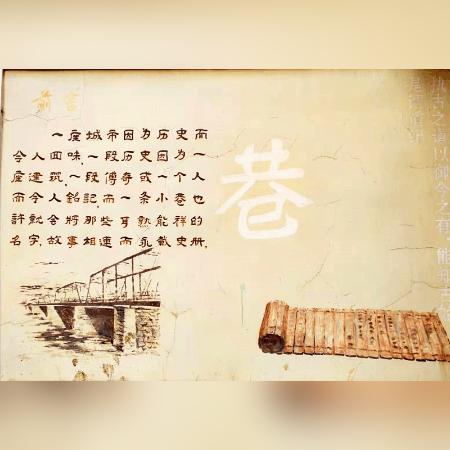 前言
一座城市因为历史而
令人回味,一段历史因为一
座遺筑,一段傳奇或一个人
而令人銘記,而一条小巷也
許就会將那些耳熟能祥的
名字,故事相連而永載史册.
巷
执古之道以御今之有,能知古
是谓道